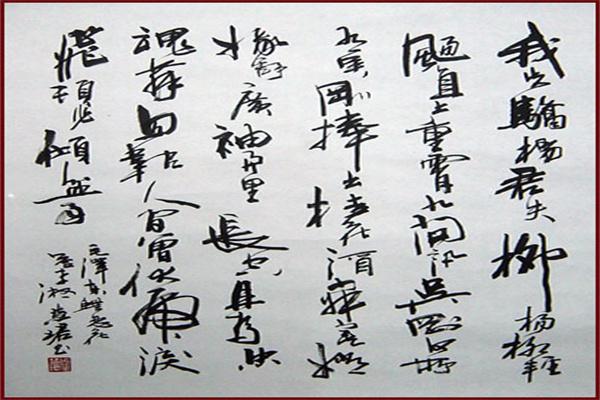 我失驕楊君失柳楊柳輕
颺直上重霄九問訊吳剛何所
有吳剛捧出桂花酒寂寞嫦
娥舒廣袖萬里長空且為忠
魂舞忽報人間曾伏虎淚
飛頓作傾盆雨
毛澤東蝶戀花